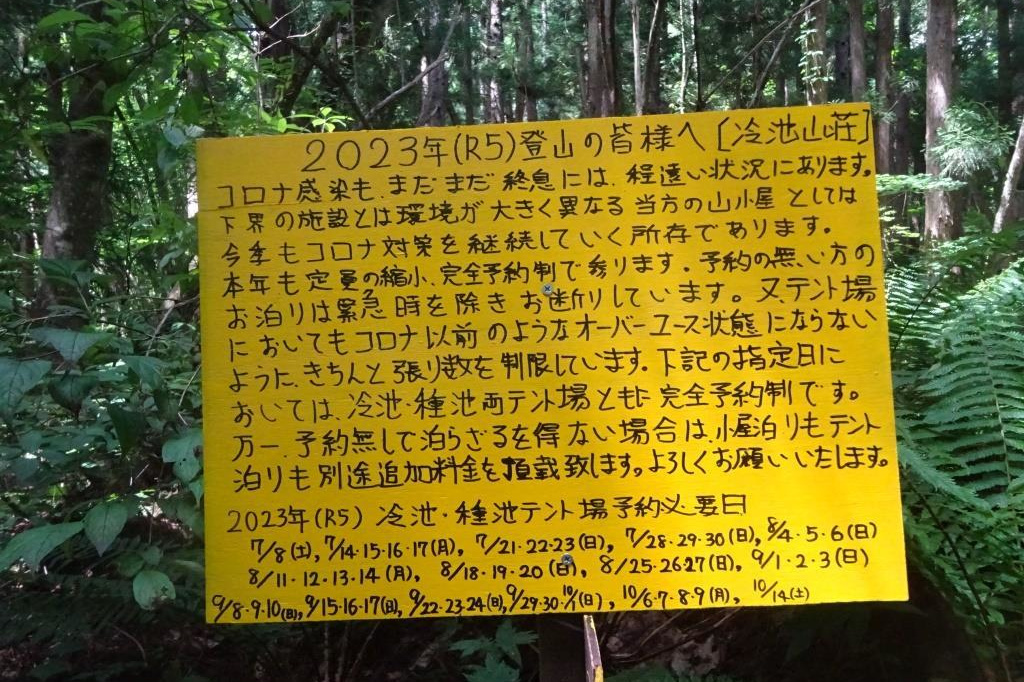 2023年(R5)登山の皆様へ〔冷池山荘〕
コロナ感染も、まだまだ終息には、程遠い状況にあります。
下界の施設とは環境が大きく異なる当方の山小屋としては
今季もコロナ対策を継続していく所存であります。
本年も定員の縮小、完全予約制で参ります。予約の無い方の
お泊りは緊急時を除きお断りしています。又、テント場
においてもコロナ以前のようなオーバーユース状態にならない
ように、きちんと張り数を制限しています。下記の指定日に
おいては、冷池・種池両テント場ともに完全予約制です。
万一、予約無しで泊らざるを得ない場合は、小屋泊りもテント
泊りも別途追加料金を頂戴致します。よろしくお願いいたします。
2023年(R5) 冷池・種池テント場予約必要日
7/8(土), 7/14・15・16・17(月), 7/21・22・23(日), 7/28・29・30(日), 8/4・5・6(日)
8/11・12・13・14(月), 8/18・19・20(日), 8/25・26・27(日), 9/1・2・3(日)
9/8・9・10(日), 9/15・16・17(日), 9/22・23・24(日), 9/29・30・10/1(日), 10/6・7・8・9(月), 10/14(土)